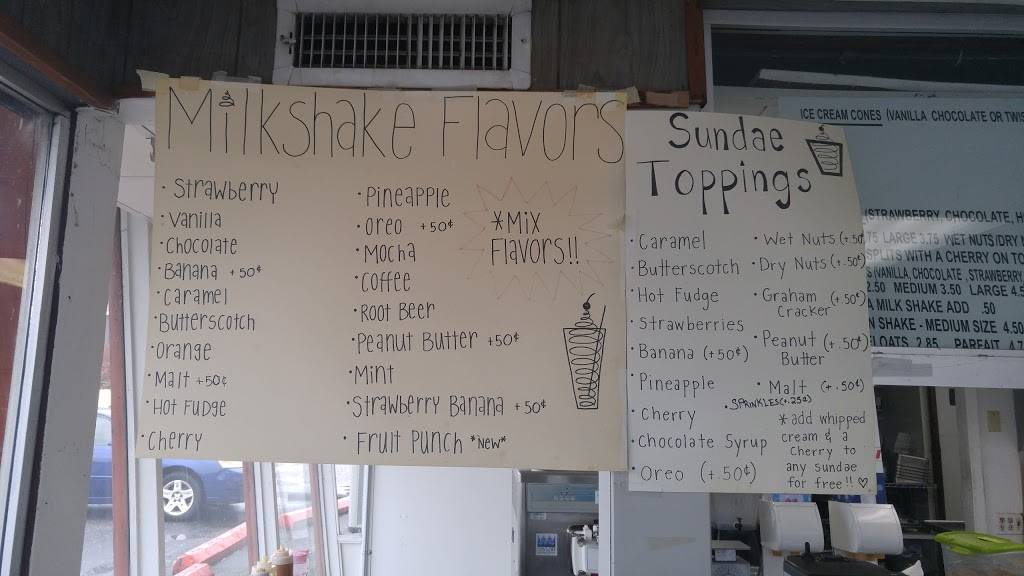 Milkshake Flavors
· Strawberry
· Vanilla
· Chocolate
· Banana +50¢
· Caramel
· Butterscotch
· Orange
· Malt +50¢
· Hot Fudge
· Cherry
· Pineapple
· Oreo +50¢
· Mocha
· Coffee
· Root Beer
· Peanut Butter +50¢
· Mint
· Strawberry Banana +50¢
· Fruit Punch *New*
*Mix
Flavors!!
Sundae
Toppings
· Caramel
· Butterscotch
· Hot Fudge
· Strawberries
· Banana (+50¢)
· Pineapple
· Cherry
· Chocolate Syrup
· Oreo (+.50¢)
· Wet Nuts (+.50¢
· Dry Nuts (+.50¢)
· Graham (+.50¢)
Cracker
· Peanut (+.50¢)
Butter
· Malt (+.50¢)
· SPRINKLES(+.25¢)
*add whipped
cream & a
cherry to
any sundae
for free!! ♡
ICE CREAM CONES (VANILLA CHOCOLATE OR TWIS
STRAWBERRY, CHOCOLATE, H
.75 LARGE 3.75 WET NUTS/DRY N
SPLITS WITH A CHERRY ON TO
VANILLA, CHOCOLATE, STRAWBERRY
2.50 MEDIUM 3.50 LARGE 4.5
A MILK SHAKE ADD .50
N SHAKE - MEDIUM SIZE 4.50
FLOATS 2.85 PARFAIT 4.7